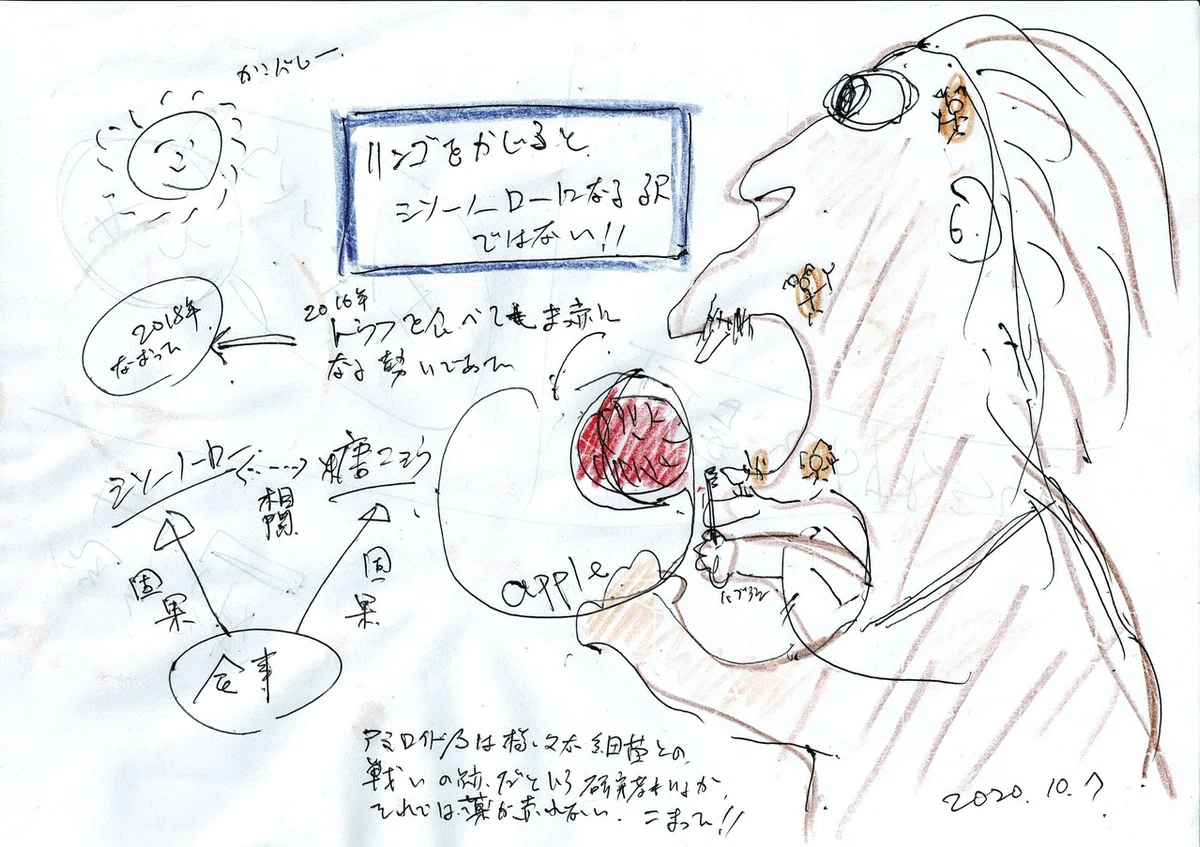 リンゴをかじると
シソーノーローになる訳
ではない!!
2016年
ドラフを食べても ま赤に
なる勢いであった
2018年
なおった
シソーノーロー
相関
糖
因果
因果
食事
apple
ハブラシ
アミロイドβは 様々な細菌との
戦いの跡だという研究者もいるが、
それでは薬が売れない. こまった!!
2020.10.7